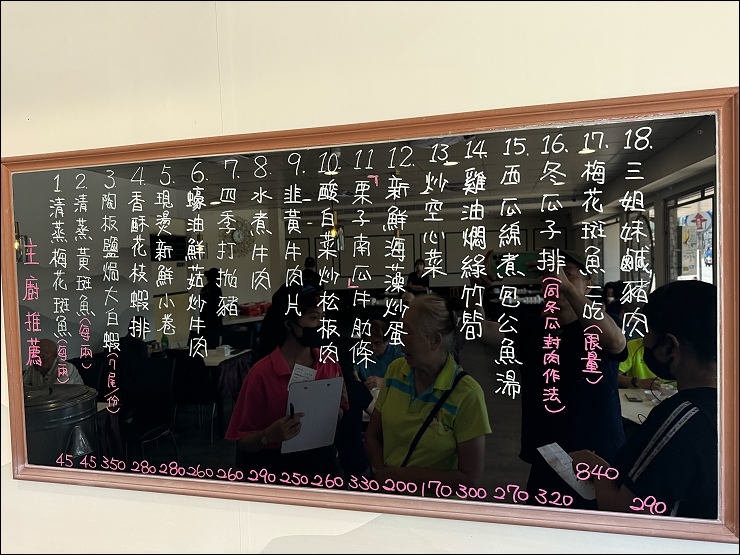 主廚推薦
1. 清蒸梅花斑魚(每兩) 45
2. 清蒸黃斑魚(每兩) 45
3. 陶板鹽焗大白蝦(7尾/份) 350
4. 香酥花枝蝦排 280
5. 現燙新鮮小卷 280
6. 蠔油鮮菇炒牛肉 260
7. 四季打拋豬 260
8. 水煮牛肉 290
9. 韭黃牛肉片 250
10. 酸白菜炒松板肉 260
11. 「栗子南瓜牛」肋條 330
12. 新鮮海藻炒蛋 200
13. 炒空心菜 170
14. 雞油燜綠竹筍 300
15. 西瓜綿煮包公魚湯 270
16. 冬瓜子排(同冬瓜封肉作法) 320
17. 梅花斑魚二吃(限量) 840
18. 三姐妹鹹豬肉 290